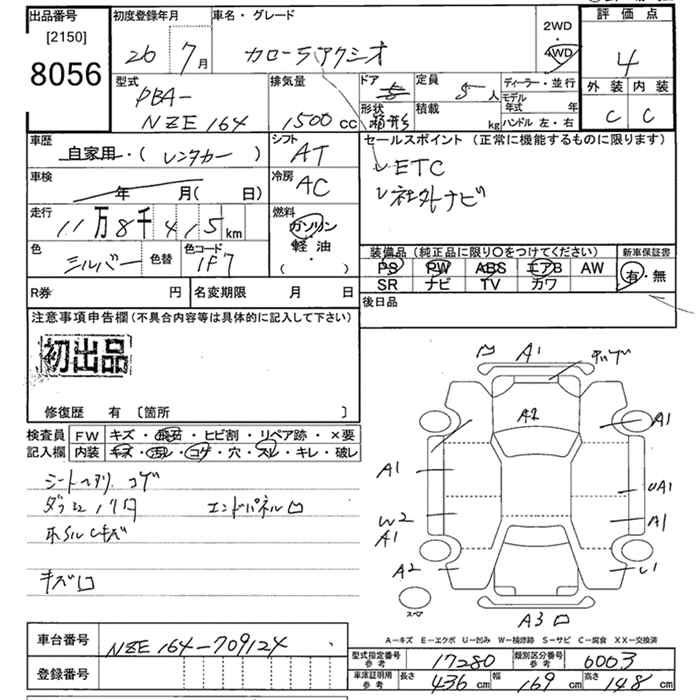 出品番号 初度登録年月 車名・グレード 2WD 評価点
[2150] 26 7月 カローラアクシオ 4WD 4
8056
外装 内装
C C
型式 排気量 ドア 5 定員 5人 ディーラー・並行
DBA- モデル年式 年
NZE164 1500cc 形状 箱形 積載 kg ハンドル 左・右
車歴 シフト セールスポイント (正常に機能するものに限ります)
自家用・(レンタカー) AT レETC
車検 冷房 レ社外ナビ
年 月( 日) AC
走行 燃料
11万8千415km ガソリン
軽油
・( )
色 色替 色コード
シルバー 1F7
装備品(純正品に限り〇をつけてください) 新車保証書
PS PW ABS エアB AW 有・無
SR ナビ TV カワ
R券 円 名変期限 月 日 後日品
注意事項申告欄(不具合内容等は具体的に記入して下さい)
初出品
修復歴 有 〔箇所 〕
検査員 FW キズ・飛石・ヒビ割・リペア跡・×要
記入欄 内装 キズ・汚レ・コゲ・穴・スレ・キレ・破レ
シートヘタリ コゲ
ダッシュ ハクリ エンドパネル凹
ホイルキズ
キズ凹
A1 チップ
A2
A1 A1
UA1
W2 A1
A1
A2 U1
スペア A3 凹
A-キズ E-エクボ U-凹み W-補修跡 S-サビ C-腐食 XX-交換済
車台番号 NZE164-709124
登録番号
型式指定番号 参考 17280 類別区分番号 参考 6003
車庫証明用 参考 長さ 436cm 幅 169cm 高さ 148cm